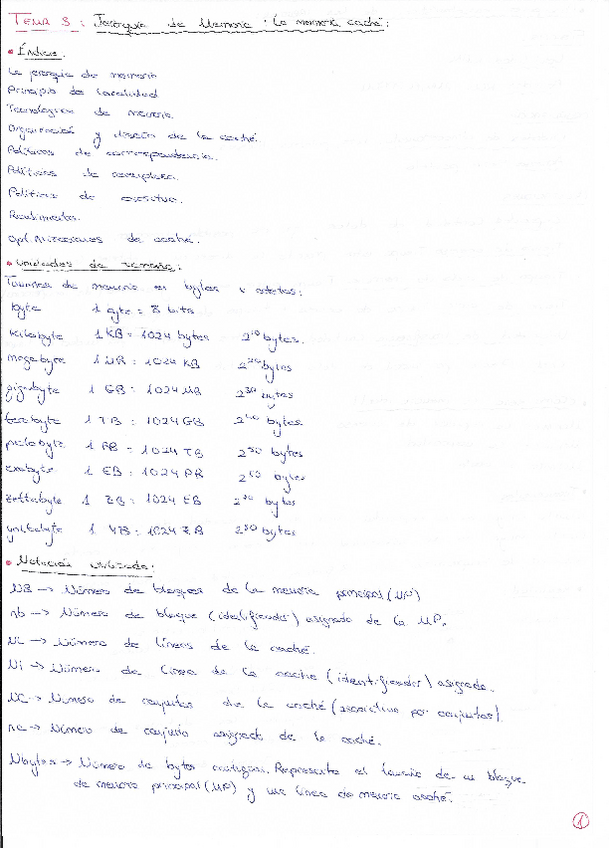 TEMA 3: Jerarquía de Memoria: La memoria caché:
• Índice.
La jerarquía de memoria
Principio de localidad
Tecnologías de memoria.
Organización y diseño de la caché.
Políticas de correspondencia.
Políticas de reemplazo.
Políticas de escritura.
Rendimiento.
Optimizaciones de caché.
• Unidades de tamaño:
Tamaños de memoria en bytes y octetos:
byte 1 byte = 8 bits
Kilobyte 1 KB = 1024 bytes 2^10 bytes.
megabyte 1 MB = 1024 KB 2^20 bytes
gigabyte 1 GB = 1024 MB 2^30 bytes
terabyte 1 TB = 1024 GB 2^40 bytes
petabyte 1 PB = 1024 TB 2^50 bytes
exabyte 1 EB = 1024 PB 2^60 bytes
zettabyte 1 ZB = 1024 EB 2^70 bytes
yottabyte 1 YB = 1024 ZB 2^80 bytes
• Notación utilizada:
NB → Número de bloques de la memoria principal (MP)
nb → Número de bloque (identificador) asignado de la MP.
NL → Número de líneas de la caché.
Nl → Número de línea de la caché (identificador) asignada.
NC → Número de conjuntos de la caché (asociativa por conjuntos).
nc → Número de conjunto asignado de la caché.
Nbytes → Número de bytes contiguos. Representa el tamaño de un bloque
de memoria principal (MP) y una línea de memoria caché.
1